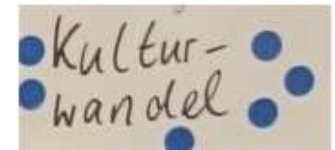 Kultur-
wandel